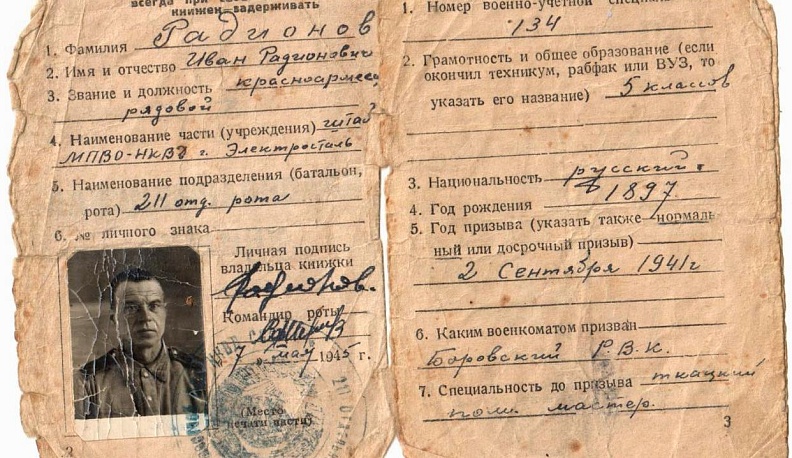 всегда при себе
книжек—задерживать
1. Фамилия Радионов
2. Имя и отчество Иван Радионович
3. Звание и должность красноармеец
рядовой
4. Наименование части (учреждения) штаб
МПВО-НКВД г. Электросталь
5. Наименование подразделения (батальон,
рота) 211 отд. рота
6. № личного знака
Личная подпись
владельца книжки
Радионов.
Командир роты
7 мая 1945 г.
(Место
печати части)
1. Номер военно-учетной
134
2. Грамотность и общее образование (если
окончил техникум, рабфак или ВУЗ, то
указать его название) 5 классов
3. Национальность русский
4. Год рождения 1897
5. Год призыва (указать также нормаль-
ный или досрочный призыв)
2 Сентября 1941г
6. Каким военкоматом призван
Боровский Р.В.К.
7. Специальность до призыва ткацкий
пом. мастер.
3